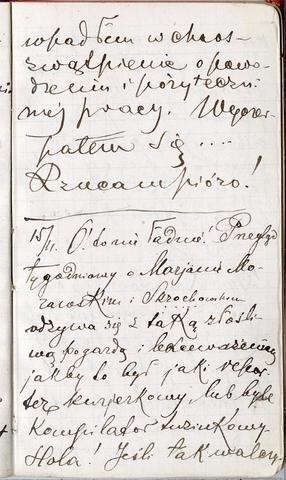 wpadłem w chaos-
zwątpienie o powo-
dzeniu i pożyteczno-
mej pracy. Wyczer-
pałem się ....
Rzucam pióro!
15/II. O! to nie ładnie! Przegląd
tygodniowy o Marjanie Mo-
rawskim i Skrochowskim
odzywa się z taką złośli-
wą pogardą i lekceważeniem
jakby to był jaki repor-
ter kurjerkowy, lub byle
Kompilator tuzinkowy
Hola! Jeśli tak